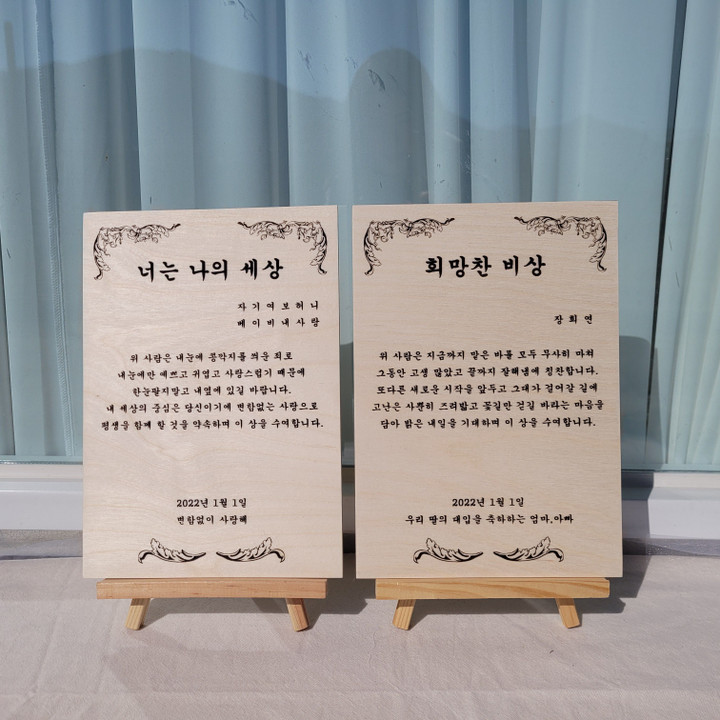 너는 나의 세상
자기여보허니
베이비내사랑
위 사람은 내눈에 콩깍지를 씌운 죄로
내눈에만 예쁘고 귀엽고 사랑스럽기 때문에
한눈팔지말고 내옆에 있길 바랍니다.
내 세상의 중심은 당신이기에 변함없는 사랑으로
평생을 함께 할 것을 약속하며 이 상을 수여합니다.
2022년 1월 1일
변함없이 사랑해
희망찬 비상
장희연
위 사람은 지금까지 맡은 바를 모두 무사히 마쳐
그동안 고생 많았고 끝까지 잘해냄에 칭찬합니다.
또다른 새로운 시작을 앞두고 그대가 걸어갈 길에
고난은 사뿐히 즈려밟고 꽃길만 걷길 바라는 마음을
담아 밝은 내일을 기대하며 이 상을 수여합니다.
2022년 1월 1일
우리 딸의 대입을 축하하는 엄마.아빠